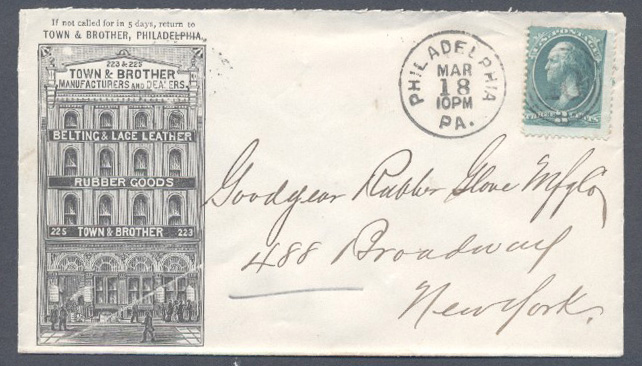 If not called for in 5 days, return to
TOWN & BROTHER, PHILADELPHIA.
223 & 225
TOWN & BROTHER
MANUFACTURERS AND DEALERS.
BELTING & LACE LEATHER
RUBBER GOODS
225 TOWN & BROTHER 223
PHILADELPHIA
MAR
18
10PM
PA.
U.S. POSTAGE
THREE 3 CENTS
Goodyear Rubber Glove Mfg Co
488 Broadway
New York.